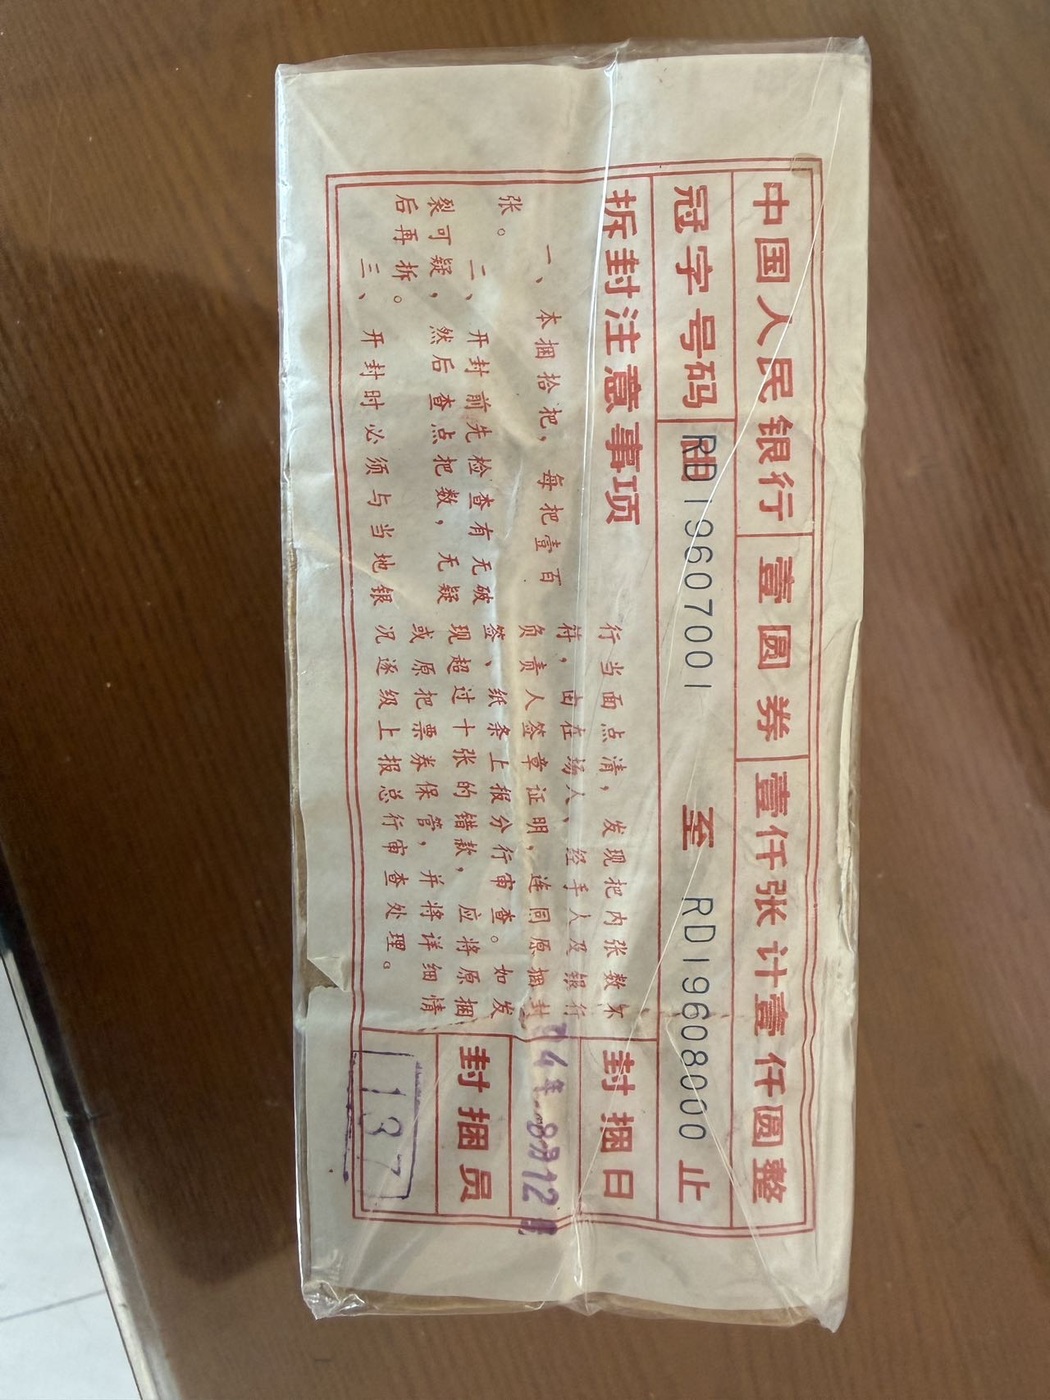 中国人民银行 壹圆券 壹仟张计壹仟圆整
冠字号码 RD19607001 至 RD19608000 止
拆封注意事项
一、本捆拾把，每把壹百
张。
二、开封前先检查有无破
裂可疑，然后查点把数，无疑
后再拆。
三、开封时必须与当地银
行当面点清，发现把内张数不
符，由在场人、经手人及银行
负责人签章证明，连同原捆封
签、纸条上报分行审查。如发
现超过十张的错款，应将原捆
或原把票券保管，并将详细情
况逐级上报总行审查处理。
封捆日
4年8月12
封捆员
137